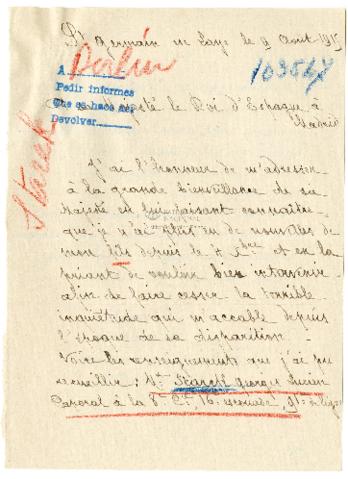 St Germain en Laye le 9 Août 1915
Berlin
103564
A
Pedir informes
Que se hace se
Devolver
Starck
Sa Majesté le Roi d'Espagne à
Madrid
J'ai l'honneur de m'adresser
à la grande bienveillance de sa
Majesté en lui faisant connaître
que je n'ai plus eu de nouvelles de
mon fils depuis le 7 et en la
priant de vouloir bien intervenir
afin de faire cesser la terrible
inquiétude qui m'accable depuis
l'époque de sa disparition
Voici les renseignements que j'ai pu
recueillir : Starck Georges Lucien
Caporal à la 7e Cie 16e escouade, 91e de ligne